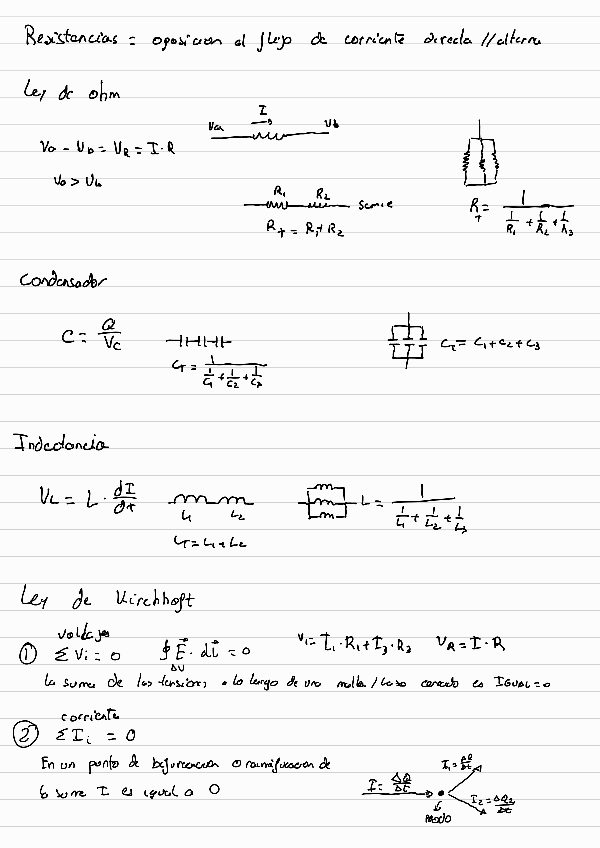 Resistencias = oposicion al flujo de corriente directa // alterna
Ley de ohm
Va - Vb = VR = I · R
Va > Vb
Va I → Vb
R1 R2 Serie
RT = R1 + R2
RT = 1 / (1/R1 + 1/R2 + 1/R3)
Condensador
C = Q / Vc
CT = 1 / (1/C1 + 1/C2 + 1/C3)
CT = C1 + C2 + C3
Inductancia
VL = L · dI/dt
L1 L2
LT = L1 + L2
L = 1 / (1/L1 + 1/L2 + 1/L3)
Ley de Kirchhoff
voltajes
① ΣVi = 0 ∮ E · dl = 0 Vi = I1 · R1 + I3 · R3 VR = I · R
ΔV
La suma de las tensiones a lo largo de una malla / lazo cerrado es IGUAL = 0
corriente
② ΣIi = 0
En un punto de bifurcacion o ramificacion de
la suma I es igual a 0
I = ΔQ/Δt
I1 = ΔQ/Δt
I2 = ΔQ2/Δt
nodo